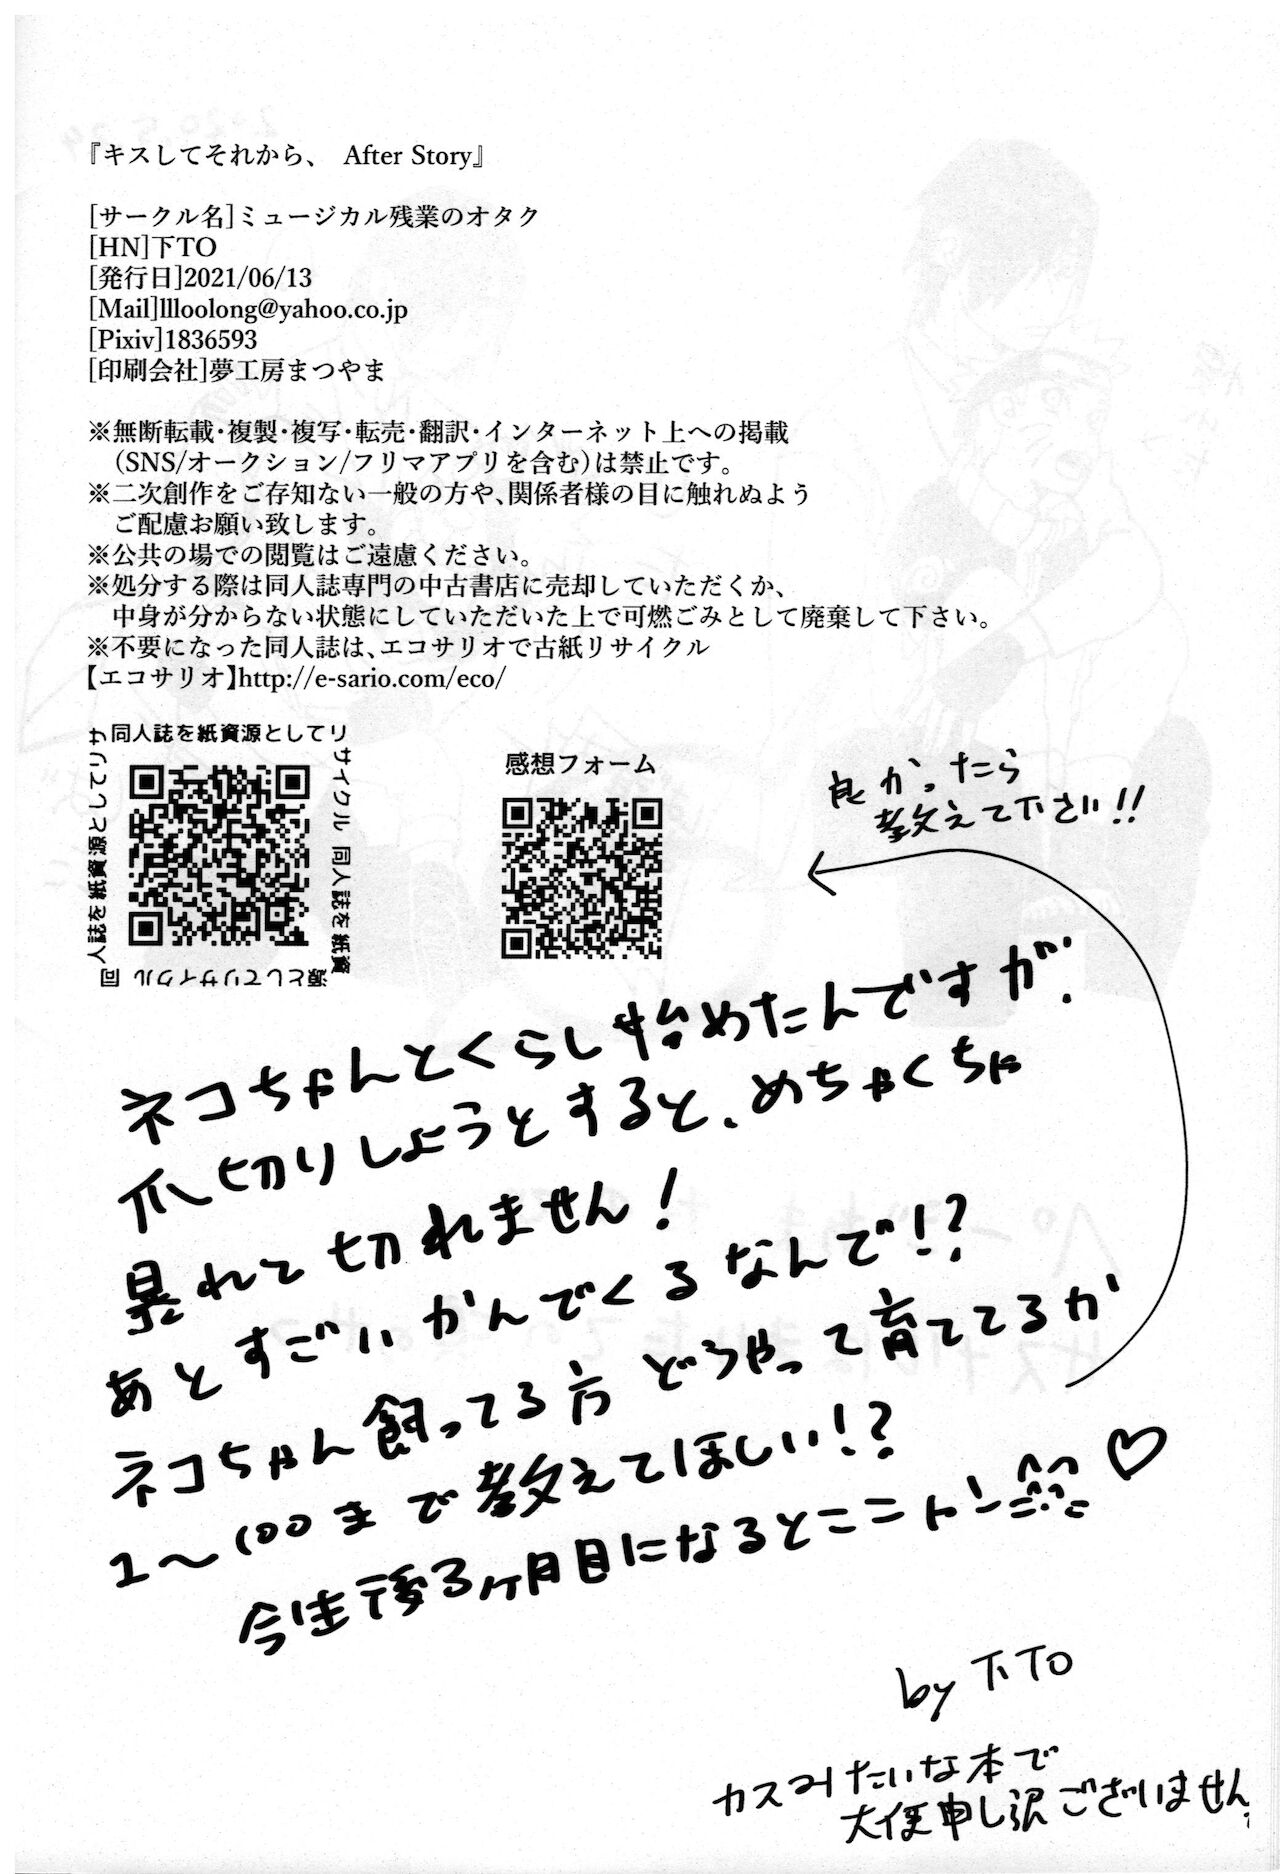 『キスしてそれから、 After Story』
[サークル名]ミュージカル残業のオタク
[HN]下TO
[発行日]2021/06/13
[Mail]llloolong@yahoo.co.jp
[Pixiv]1836593
[印刷会社]夢工房まつやま
※無断転載・複製・複写・転売・翻訳・インターネット上への掲載
（SNS/オークション/フリマアプリを含む）は禁止です。
※二次創作をご存知ない一般の方や、関係者様の目に触れぬよう
ご配慮お願い致します。
※公共の場での閲覧はご遠慮ください。
※処分する際は同人誌専門の中古書店に売却していただくか、
中身が分からない状態にしていただいた上で可燃ごみとして廃棄して下さい。
※不要になった同人誌は、エコサリオで古紙リサイクル
【エコサリオ】http://e-sario.com/eco/
同人誌を紙資源としてリ
サイクル 同人誌を紙資
源としてリサイクル 同
人誌を紙資源としてリサ
感想フォーム
良かったら
教えて下さい!!
ネコちゃんとくらし始めたんですが、
爪切りしようとすると、めちゃくちゃ
暴れて切れません!
あとすごいかんでくるなんで!?
ネコちゃん飼ってる方どうやって育ててるか
1〜100まで教えてほしい!?
今生後3ヶ月目になるとこニャン♡
by 下TO
カスみたいな本で
大変申し訳ございません